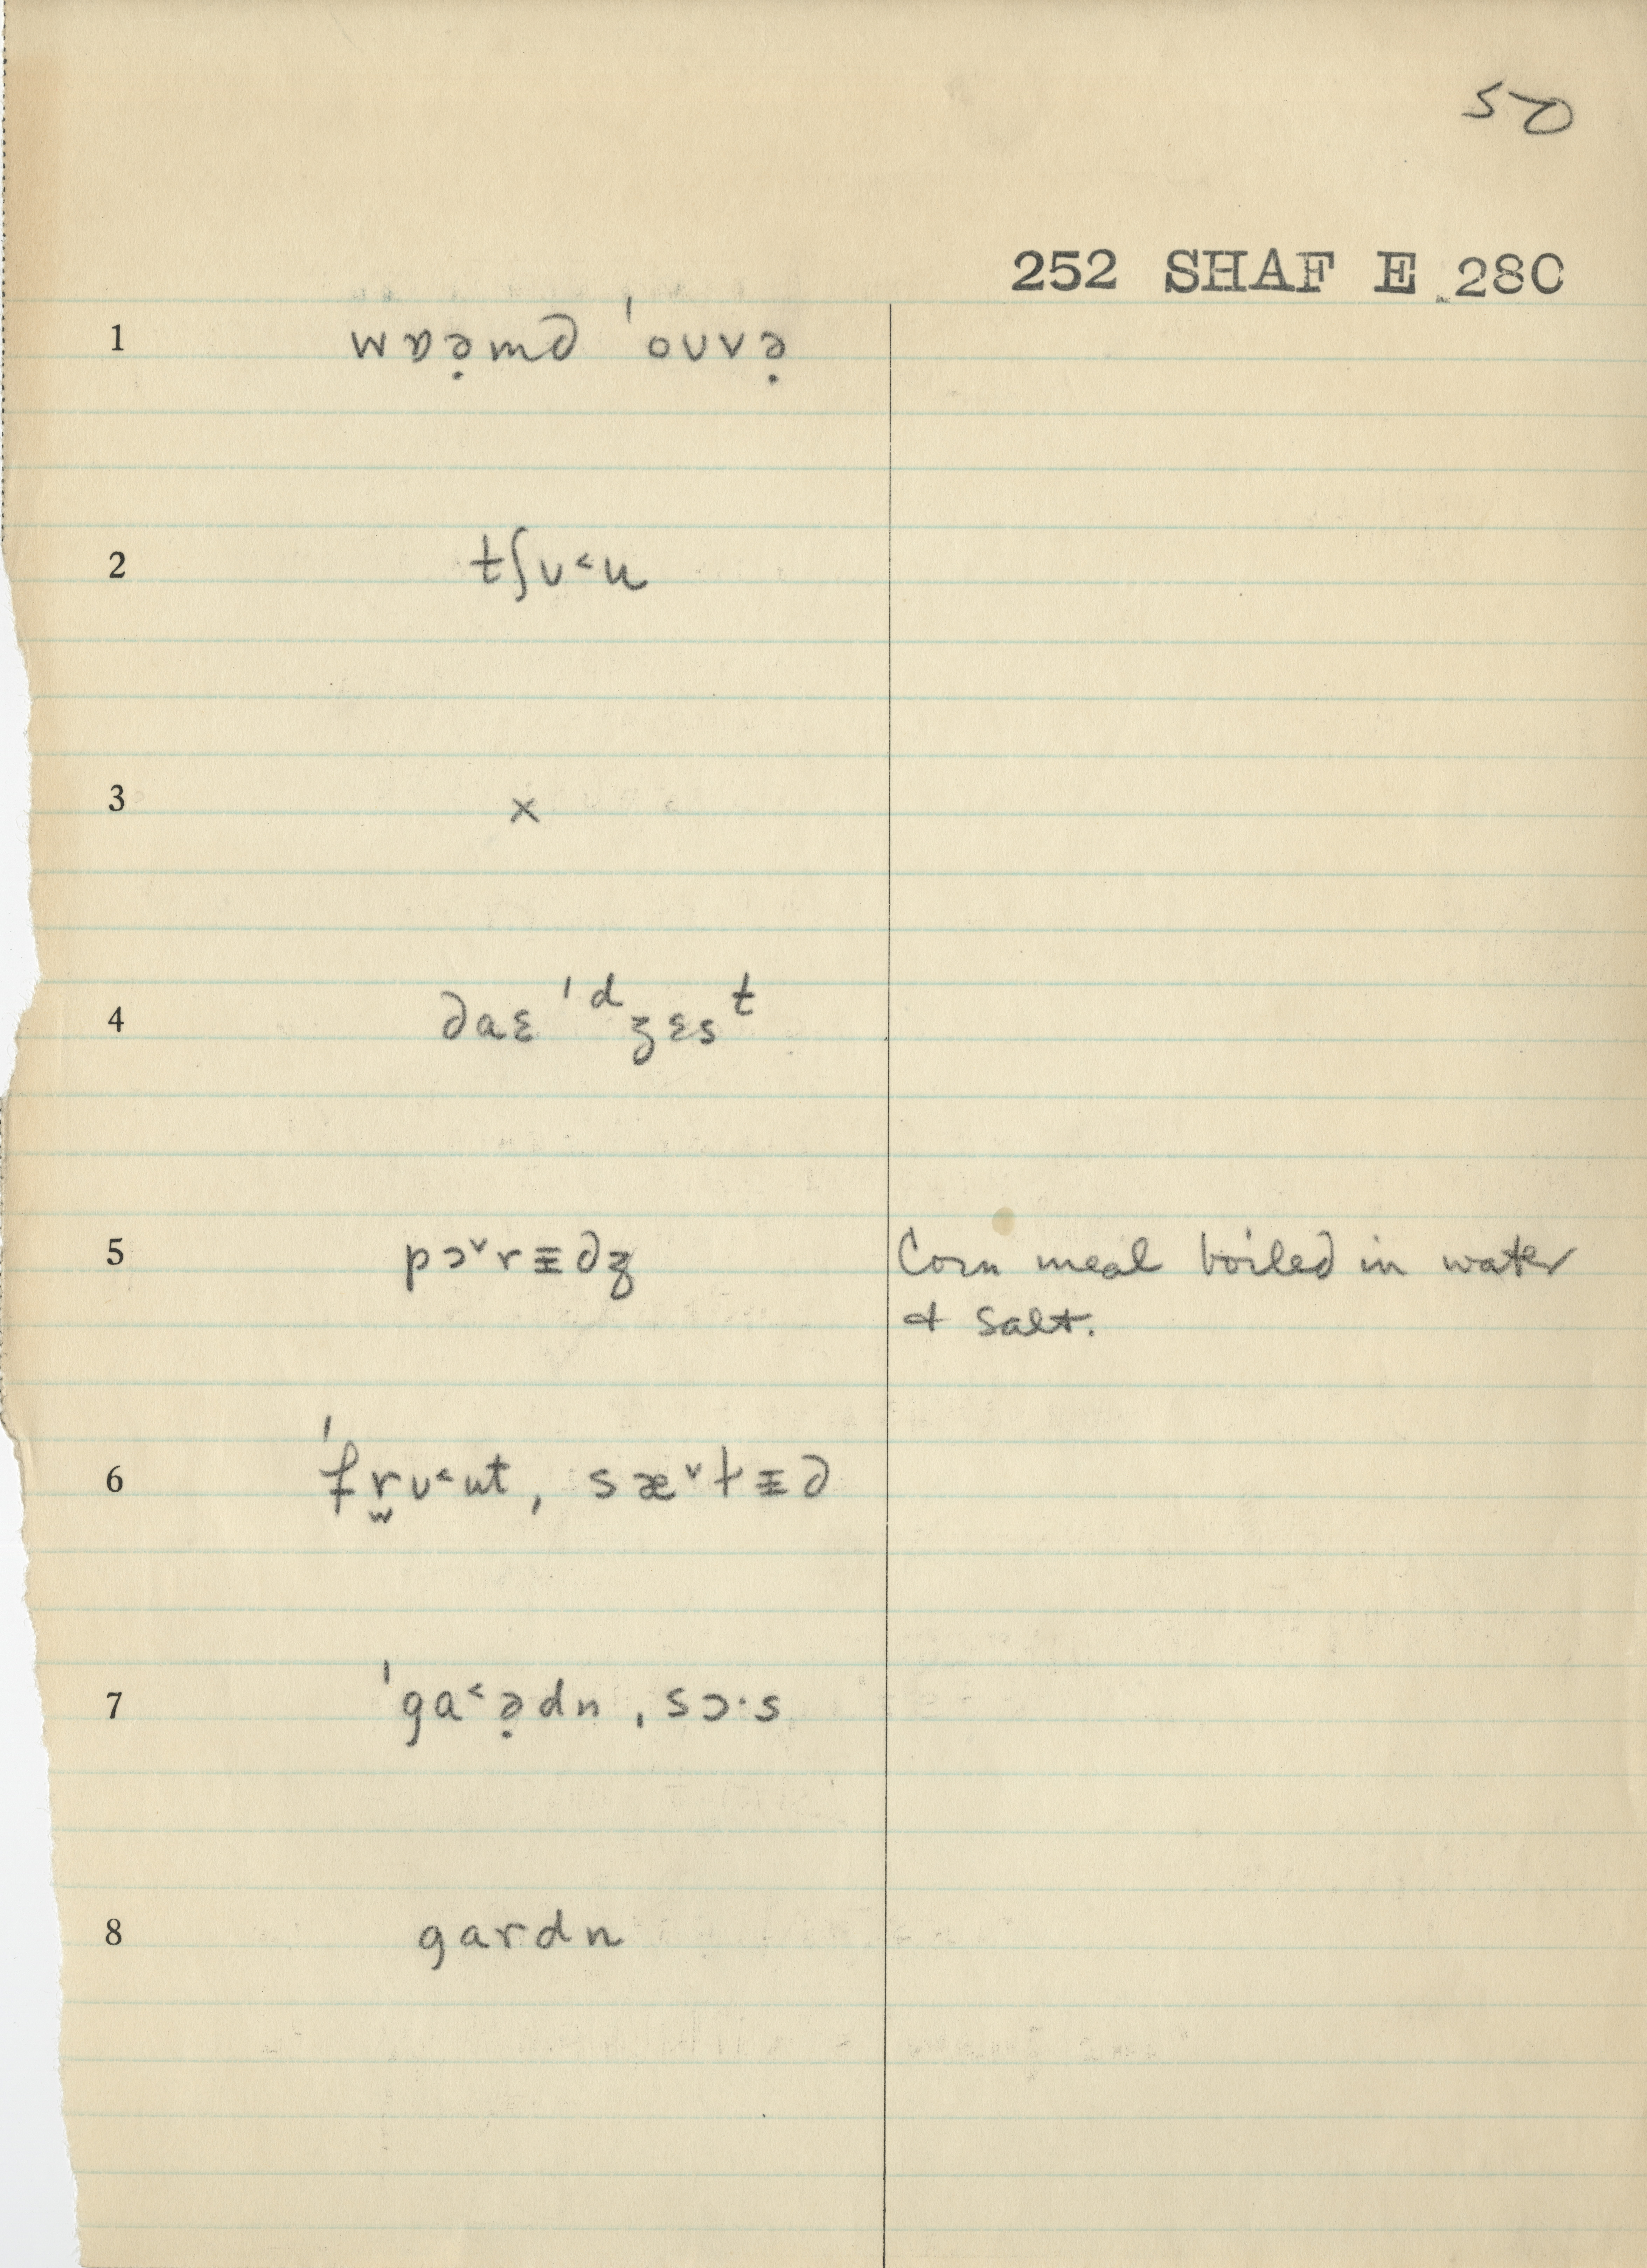 50
252 SHAF E 280
1 wɒə̣md ˈoʊvə̣
2 tʃʊ˂u
3 ×
4 daɛˈᵈʒɛsᵗ
5 pɔ˅rɪ̵dʒ Corn meal boiled in water
& salt.
6 ˈfr̫ʊ˂ut, sæ˅lɪ̵d
7 ˈga˂ə̣dn, sɔ·s
8 gardn